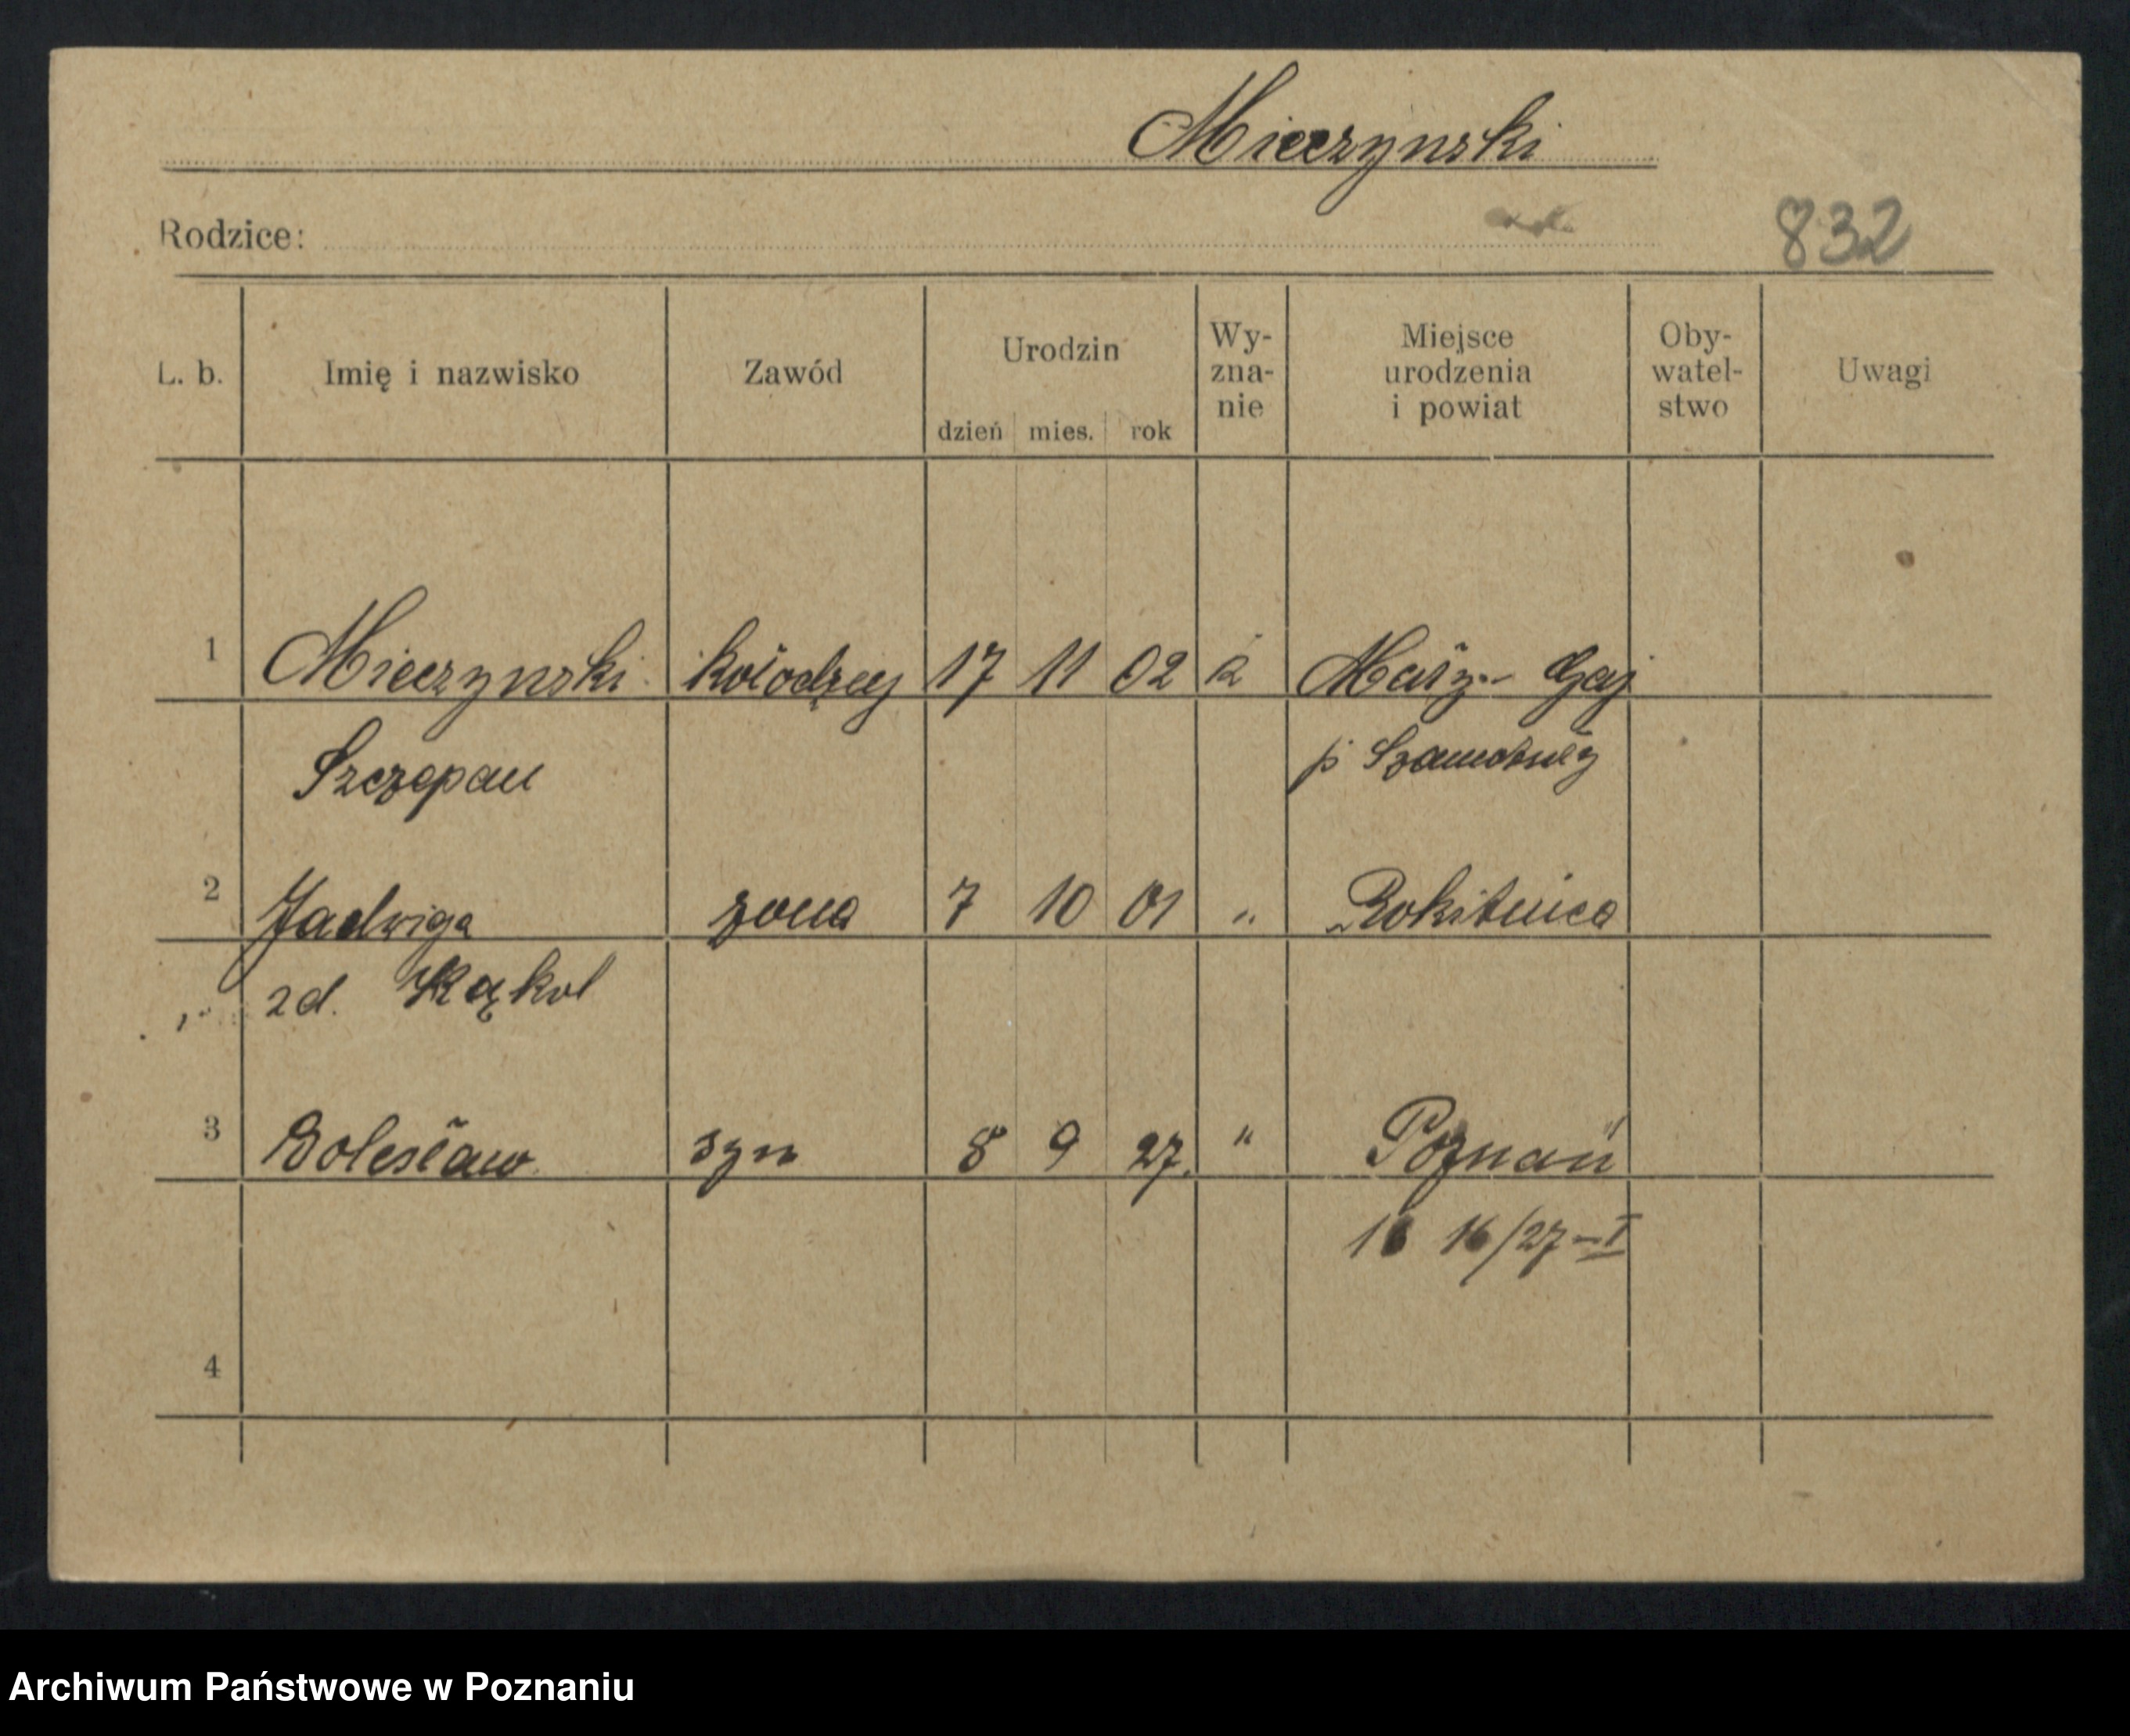 Mieczynski
Rodzice:
832
L. b. Imię i nazwisko Zawód Urodzin dzień mies. rok Wy-zna-nie Miejsce urodzenia i powiat Oby-watel-stwo Uwagi
1 Mieczynski kołodziej 17 11 02 Gaj
Szczepan p Szamotuły
2 Jadwiga żona 7 10 01 " Rokitnica
zd. Kąkol
3 Bolesław syn 8 9 27. " Poznań
16/27-I
4
Archiwum Państwowe w Poznaniu